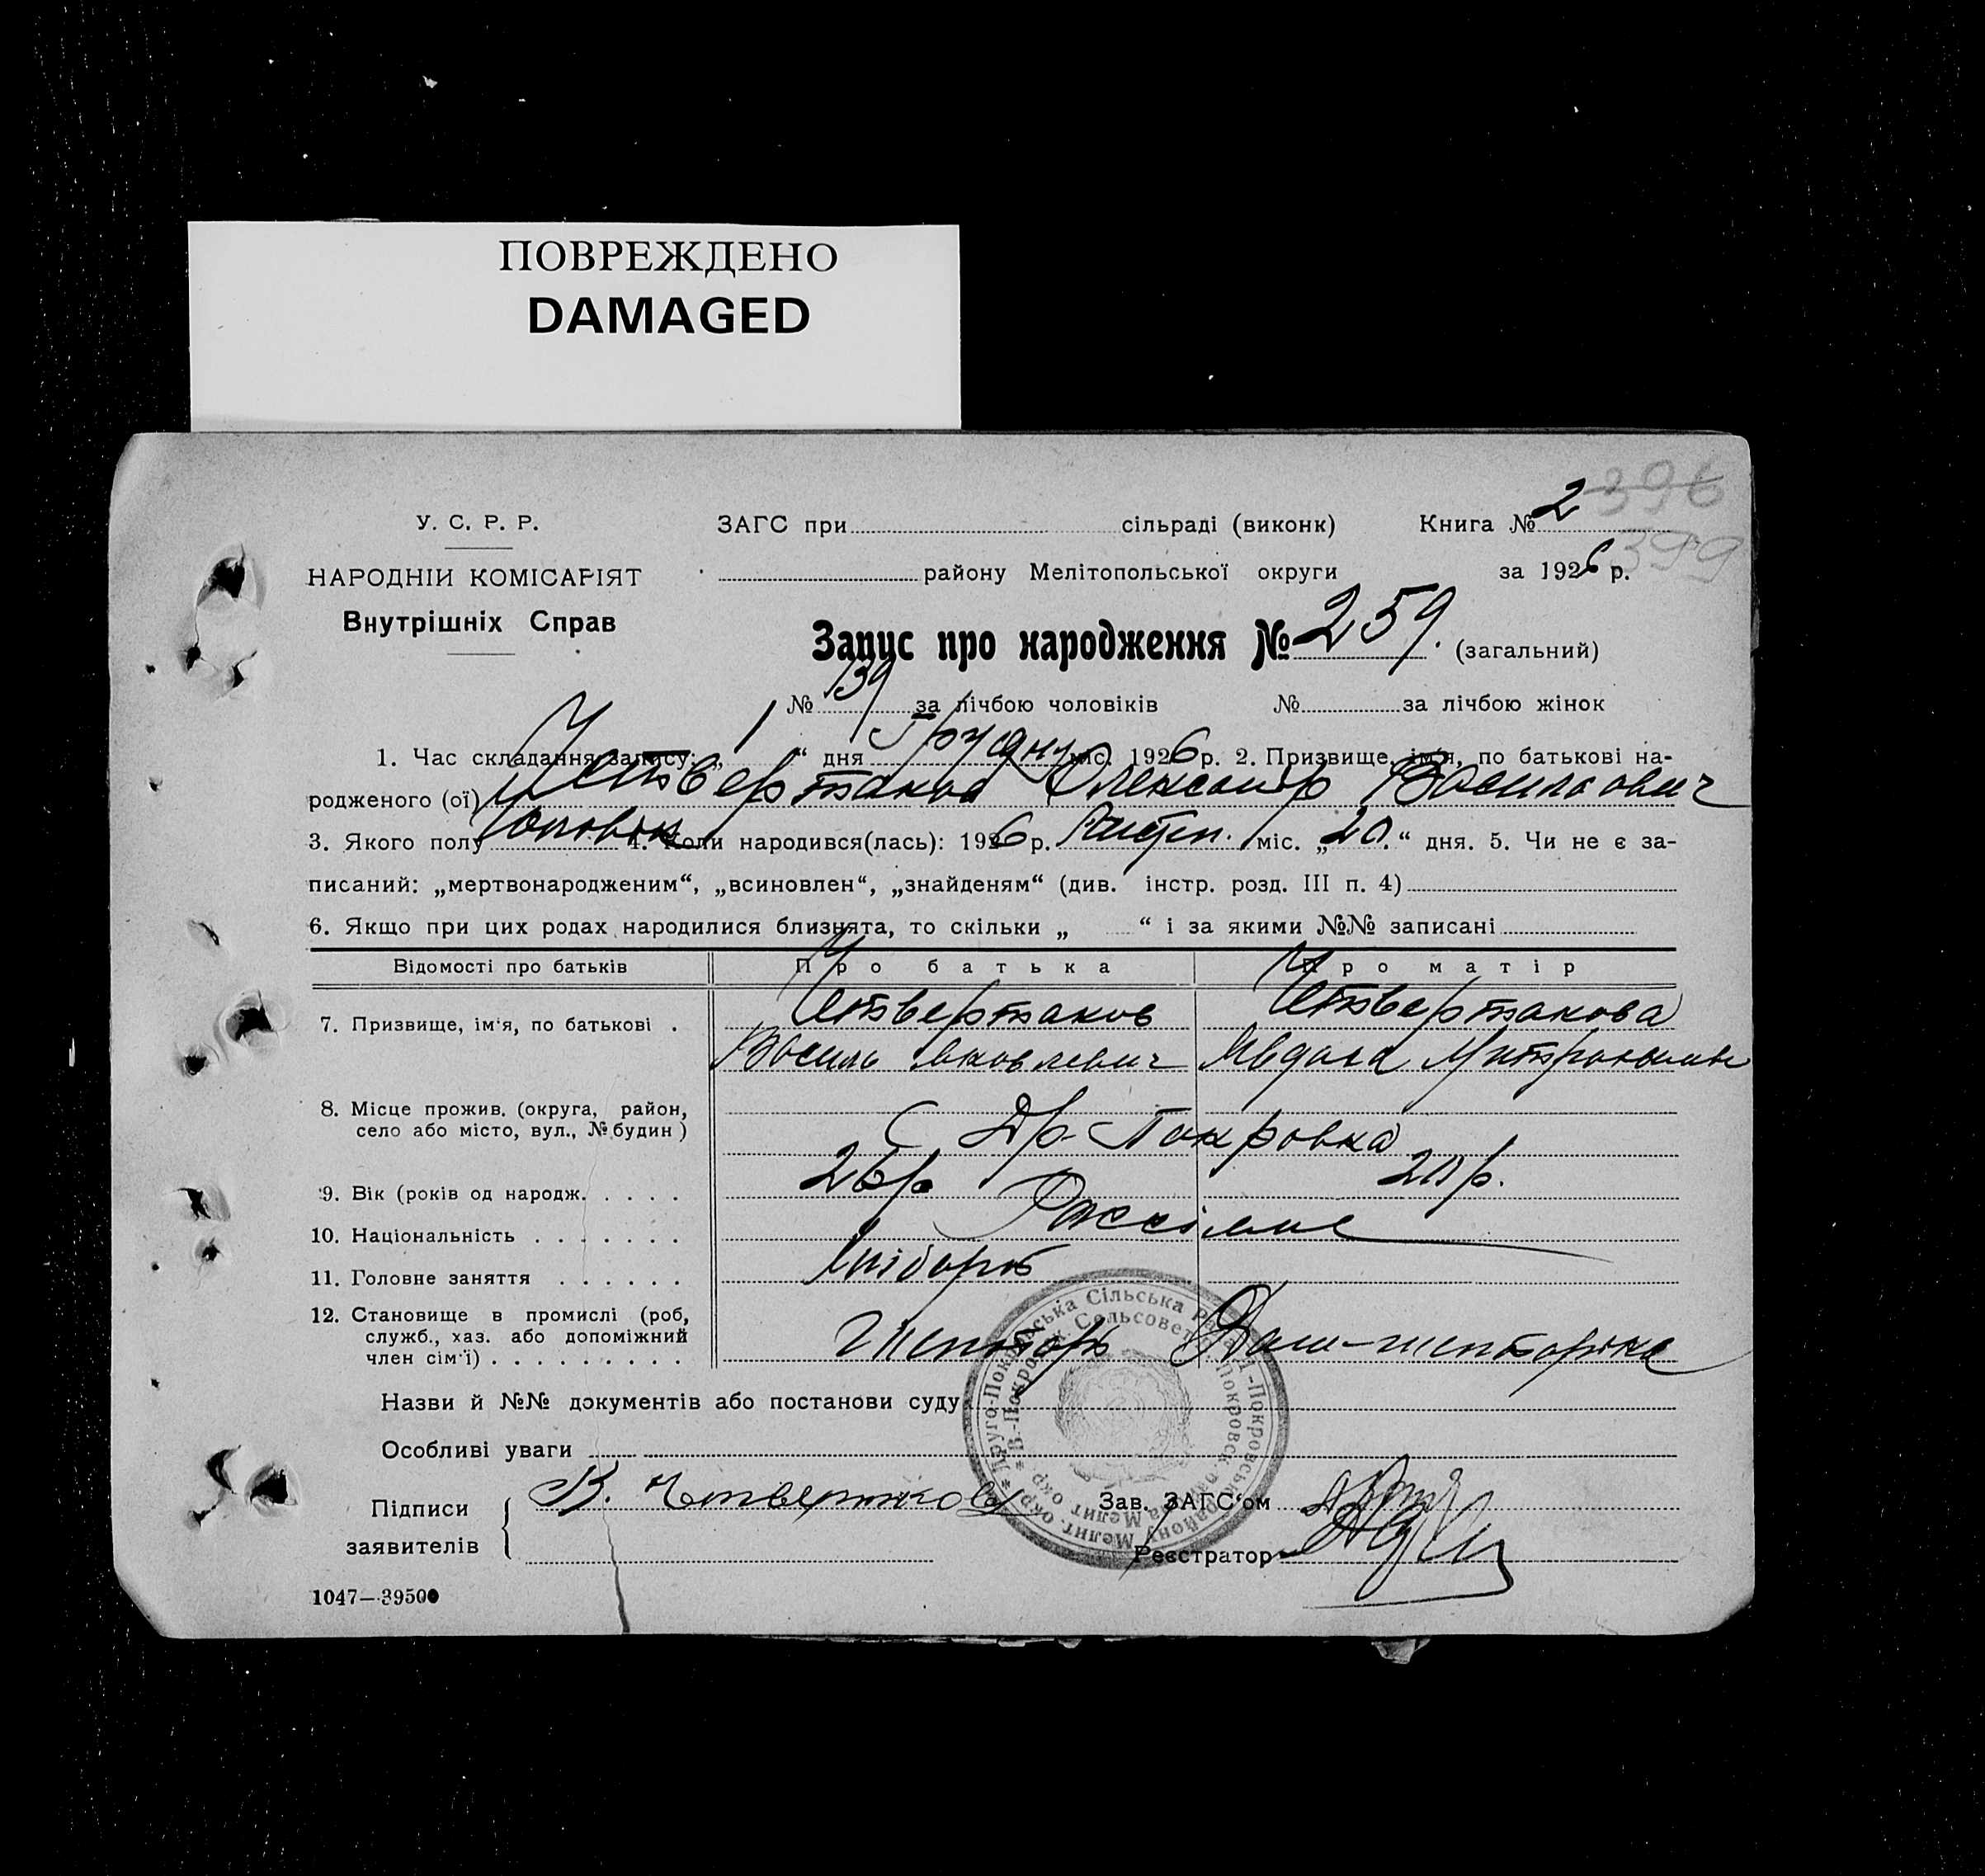 ПОВРЕЖДЕНО
DAMAGED
396
399
У. С. Р. Р.
НАРОДНІИ КОМІСАРІЯТ
Внутрішніх Справ
ЗАГС при сільраді (виконк) Книга № 2
району Мелітопольської округи за 1926 р.
Запис про народження № 259. (загальний)
№ 139 за лічбою чоловіків № за лічбою жінок
1. Час складання запису: „1“ дня Грудня міс. 1926 р. 2. Призвище, ім'я, по батькові на-
родженого (ої) Четвертаков Олександр Васильович
3. Якого полу Чоловік 4. Коли народився(лась): 1926 р. міс. „20.“ дня. 5. Чи не є за-
писаний: „мертвонародженим“, „всиновлен“, „знайденям“ (див. інстр. розд. III п. 4)
6. Якщо при цих родах народилися близнята, то скільки „ “ і за якими №№ записані
Відомості про батьків Про батька Про матір
7. Призвище, ім'я, по батькові . Четвертаков Четвертакова
Василь Яковлевич Явдоха
8. Місце прожив. (округа, район,
село або місто, вул., № будин) С Др-Покровка
9. Вік (років од народж. . . . . 26 р 20 р.
10. Національність . . . . . . .
11. Головне заняття . . . . . . Хлібороб
12. Становище в промислі (роб,
служб., хаз. або допоміжний
член сім'ї) . . . . . . . . .
Назви й №№ документів або постанови суду
Особливі уваги
Підписи
заявителів
В. Четвертков
Зав. ЗАГС'ом
Реєстратор
1047—39500